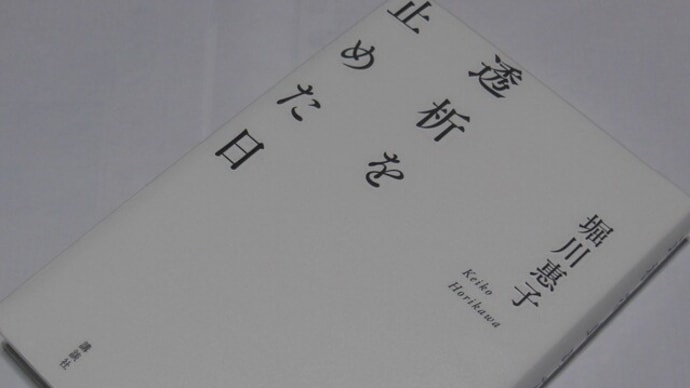 透析を
止めた日
堀川惠子
Keiko
Horikawa
講談社